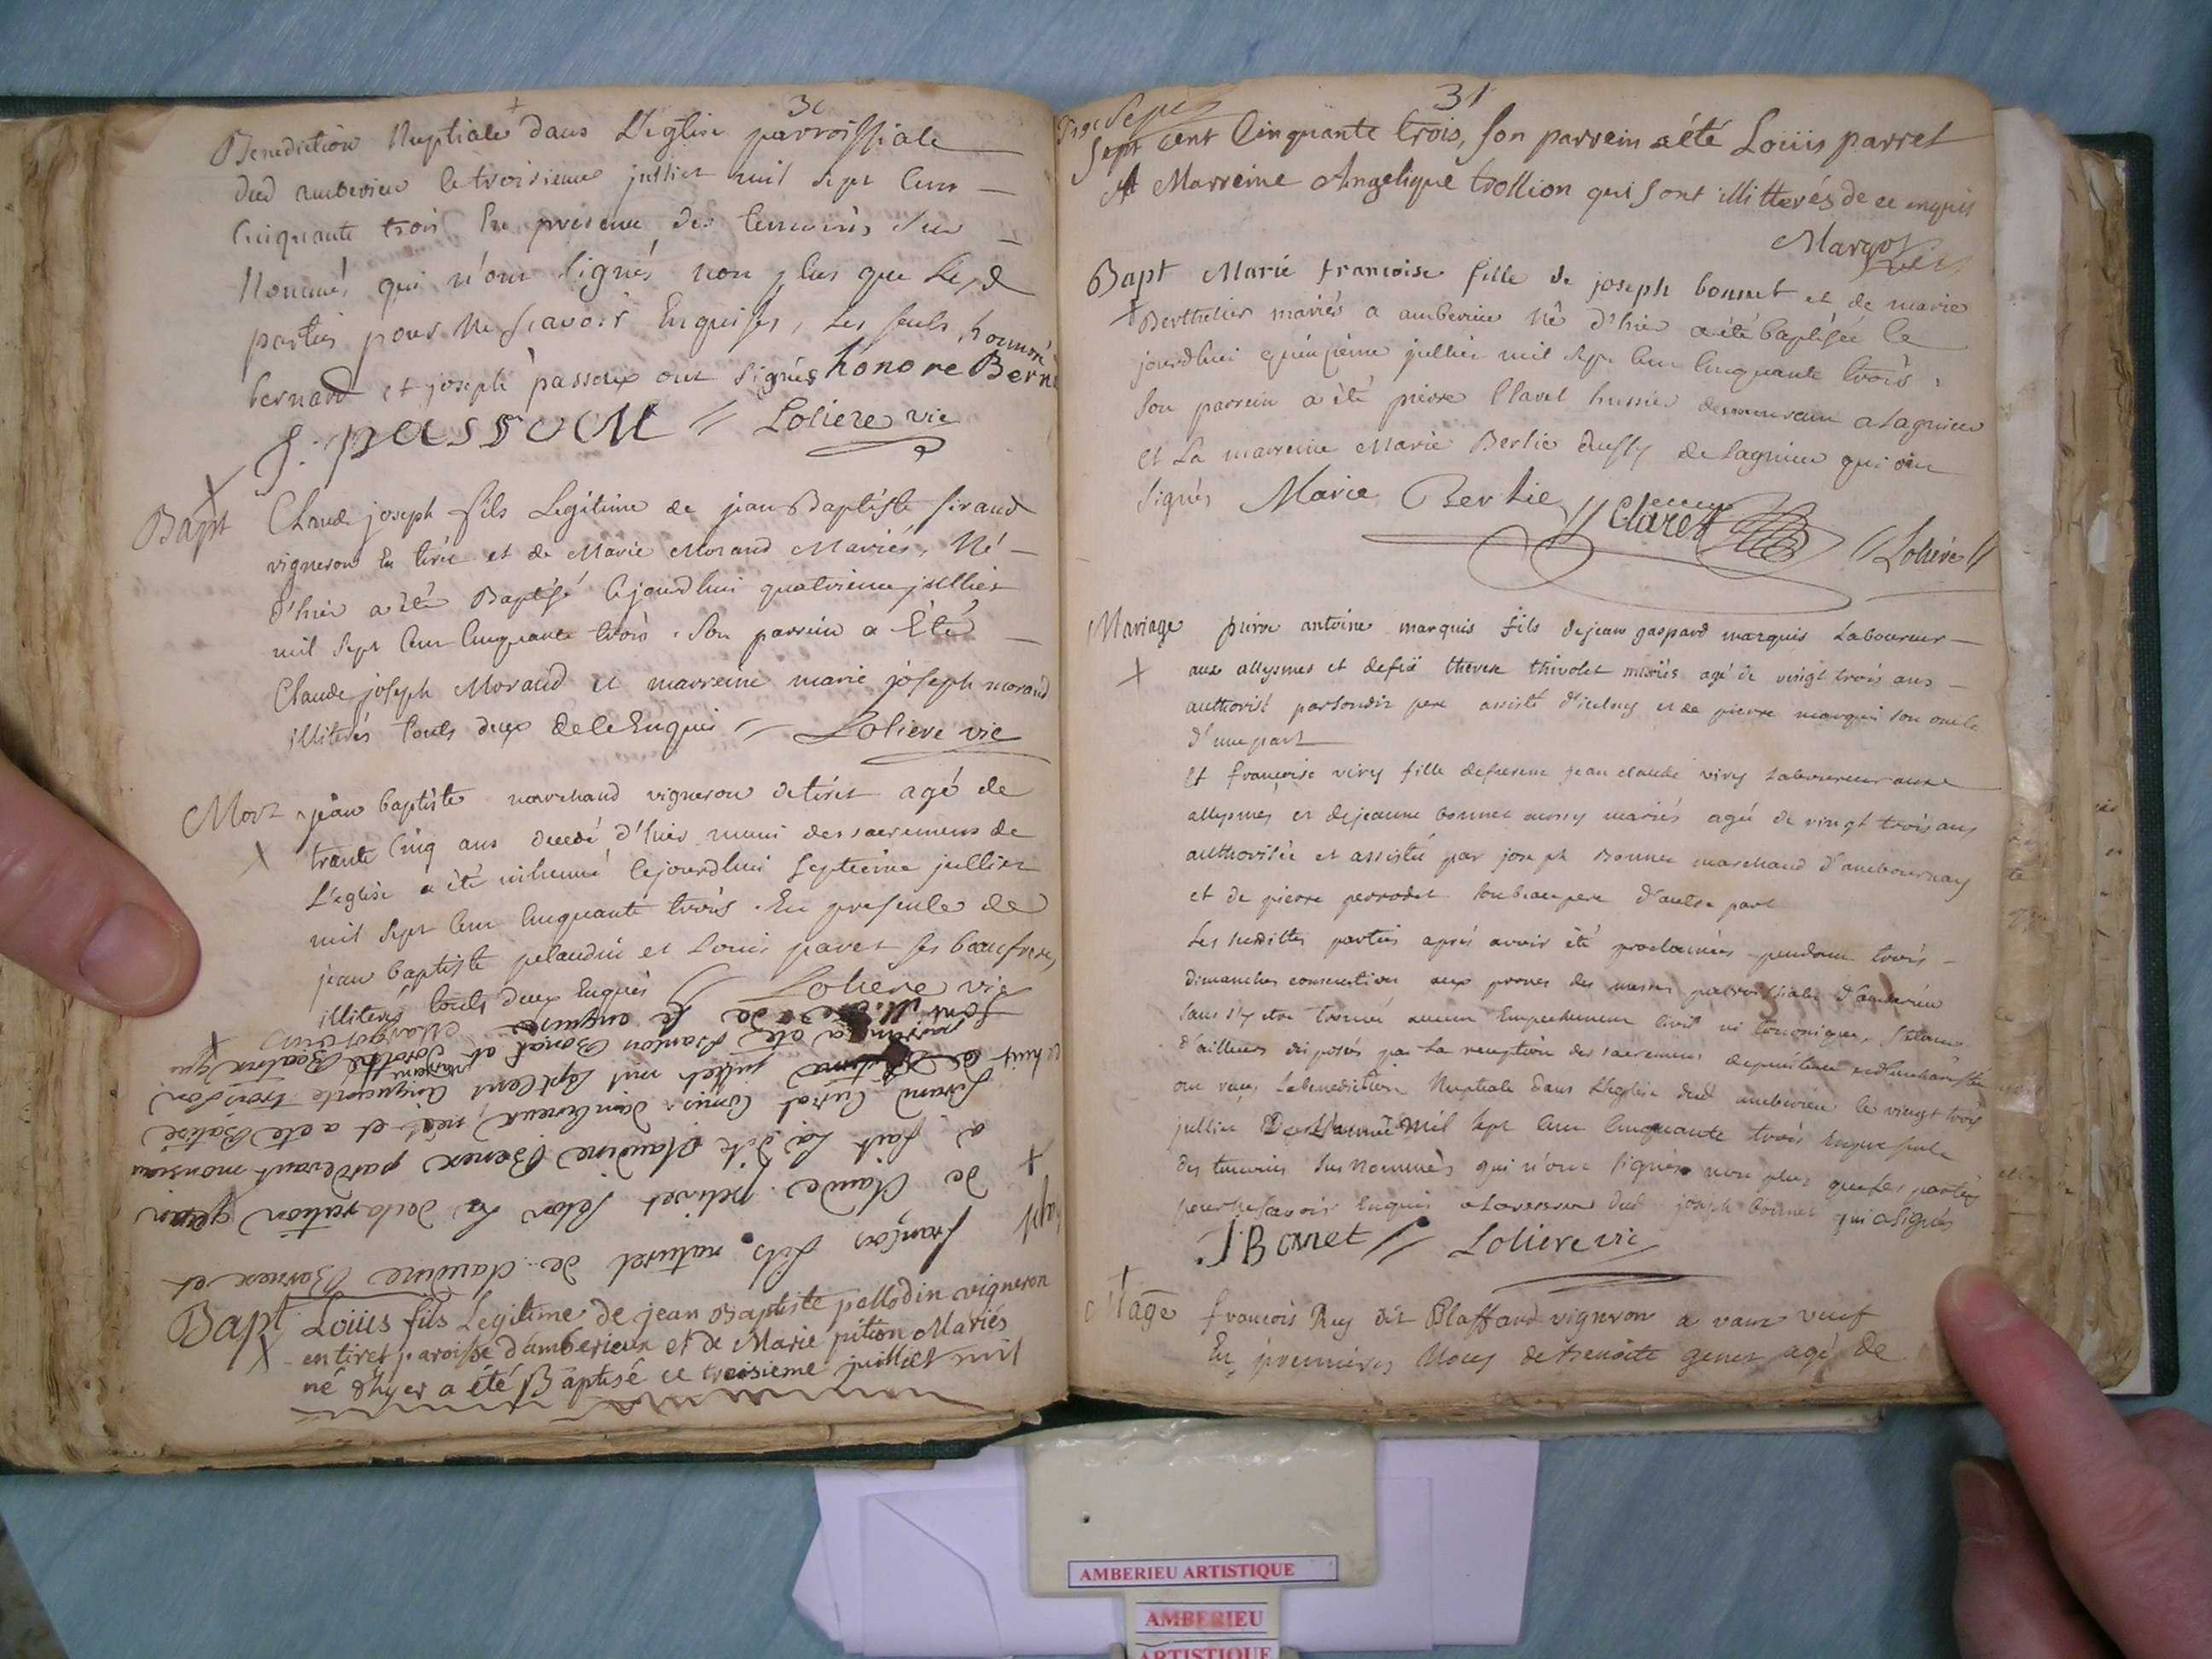 30
Benediction Nuptiale dans L'eglise parroissiale
dud amberieu le troisieme juillet mil sept cent
cinquante trois En presence des temoins sus
Nommés qui n'ont signés non plus que les d
parties pour ne scavoir Enquises, les seuls honnoré
bernard et joseph passoux ont signés honore Berna
J. passoux // Loliere vic
Bapt Claude joseph fils Legitime de jean Baptiste siraud
vigneron En tiret et de Marie Morand Mariés, Né
d'hier a été Baptisé cejourdhui quatrieme juillet
mil sept cent cinquante trois. Son parrein a Eté
Claude joseph Morand et marreine marie joseph morand
illiterés touts deux de ce Enquis // Loliere vic
Mort jean baptiste marchand vigneron de tiret agé de
trante cinq ans decedé d'hier muni des sacremens de
L'eglise a été inhumé cejourdhui septieme juillet
mil sept cent cinquante trois. En presence de
jean baptiste pelaudin et Louis paret ses beaufreres
illiterés touts deux Enquis // Loliere vic
françois fils naturel de claudine Bornex et
de Claude pelisset selon la declaration quen
a fait la dite Claudine Bonex pardevant monsieur
juillet mil sept cent cinquante trois son
Bapt Loüis fils Legitime de jean Baptiste pallodin vigneron
en tiret paroisse d'amberieux et de Marie pition Mariés
né d'hyer a été Baptisé ce treisieme juillet mil
31
sept cent Cinquante trois, son parrein a été Loüis parret
et Marreine Angelique trollion qui sont illitterés de ce enquis
Margot
Bapt Marie francoise fille de joseph bonnet et de marie
Berthelier mariés a amberieu Né d'hier a été baptisée ce
jourdhui quinzieme juillet mil sept cent cinquante trois,
son parrein a été pierre Claret hussier demeurant a Lagnieu
et La marreine Marie Berlie aussy de Lagnieu qui ont
signés Marie Berlie // Claret // Loliere //
Mariage pierre antoine marquis fils de jean gaspard marquis Laboureur
aux allysmes et de thérese thivolet mariés agé de vingt trois ans
authorisé par sondit pere assisté d'iceluy et de pierre marquis son oncle
d'une part
Et françoise viry fille de jean claude viry Laboureur aux
allysmes et de jeanne bonnet aussy mariés agée de vingt trois ans
authorisée et assistée par joseph Bonnet marchand d'ambournay
et de pierre perrodet son beaupere d'autre part
Les susdittes parties aprés avoir été proclamées pendant trois
dimanches consecutives aux prones des messes parroissiales d'amberieu
sans s'y etre trouvé aucun Empechement civil ni canonique, s'etant
d'ailleurs disposés par la reception des sacremens de penitence et d'eucharistie
ont reçus La benediction Nuptiale dans L'eglise dud amberieu le vingt trois
juillet De L'année mil sept cent cinquante trois En presence
des temoins sus nommés qui n'ont signés non plus que les parties
pour ne scavoir Enquis a La reserve dud joseph bonnet qui a signés
J Bonnet // Loliere vic
françois Rey dit Blaffard vigneron a vaux veuf
En premieres Noces de genet agé de
AMBERIEU ARTISTIQUE
AMBERIEU
ARTISTIQUE